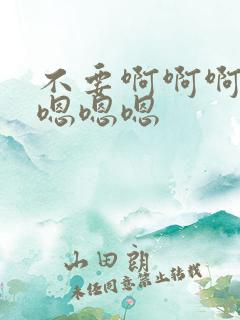 不要啊啊啊
嗯嗯嗯
山田朗
未经同意禁止转载